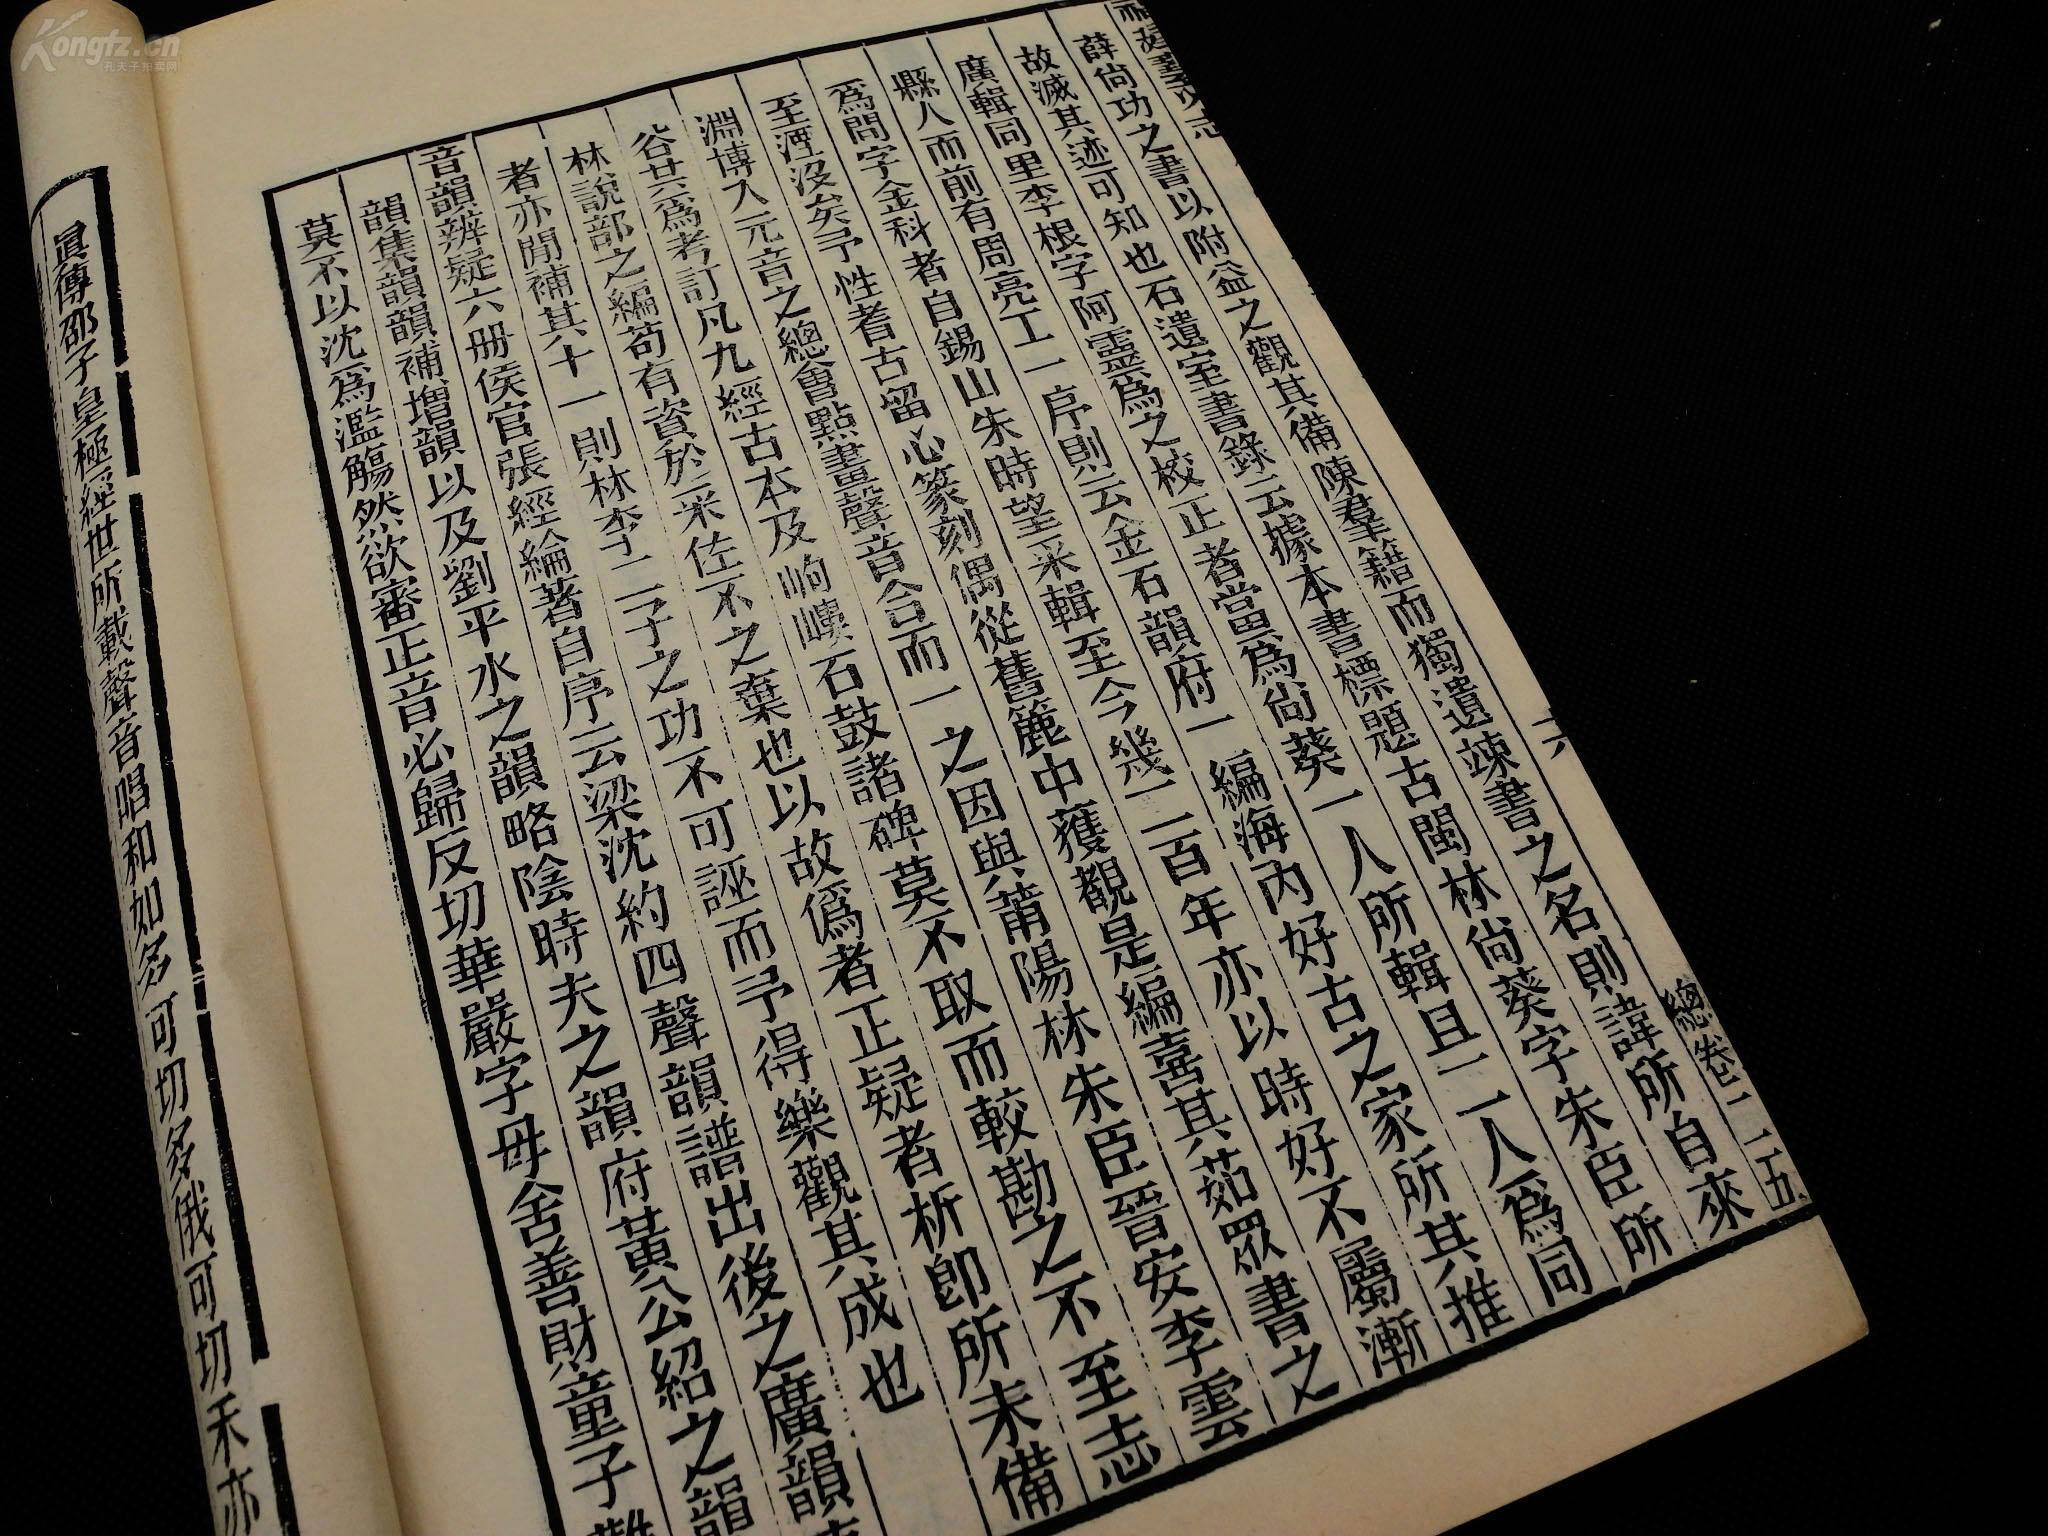 Kongfz.cn
孔夫子拍卖网
總卷二一五
六
薛尙功之書以附益之觀其備陳羣籍而獨遺竦書之名則諱所自來
故滅其迹可知也石遺室書錄云據本書標題古閩林尙葵字朱臣所
廣輯同里李根字阿靈爲之校正者當爲尙葵一人所輯且二人爲同
縣人而前有周亮工一序則云金石韻府一編海內好古之家所其推
爲問字金科者自錫山朱時望采輯至今幾二百年亦以時好不屬漸
至湮沒矣予性耆古留心篆刻偶從舊簏中獲觀是編喜其茹眾書之
淵博入元音之總會點畫聲音合而一之因與莆陽林朱臣晉安李雲
谷共爲考訂凡九經古本及岣嶁石鼓諸碑莫不取而較勘之不至志
林說部之編苟有資於采佐不之棄也以故僞者正疑者析卽所未備
者亦閒補其十一則林李二子之功不可誣而予得樂觀其成也
音韻辨疑六册侯官張經綸著自序云梁沈約四聲韻譜出後之廣韻
韻集韻韻補增韻以及劉平水之韻略陰時夫之韻府黃公紹之韻
莫不以沈爲濫觴然欲審正音必歸反切華嚴字母舍善財童子
眞傳邵子皇極經世所載聲音唱和如多可切多俄可切禾亦